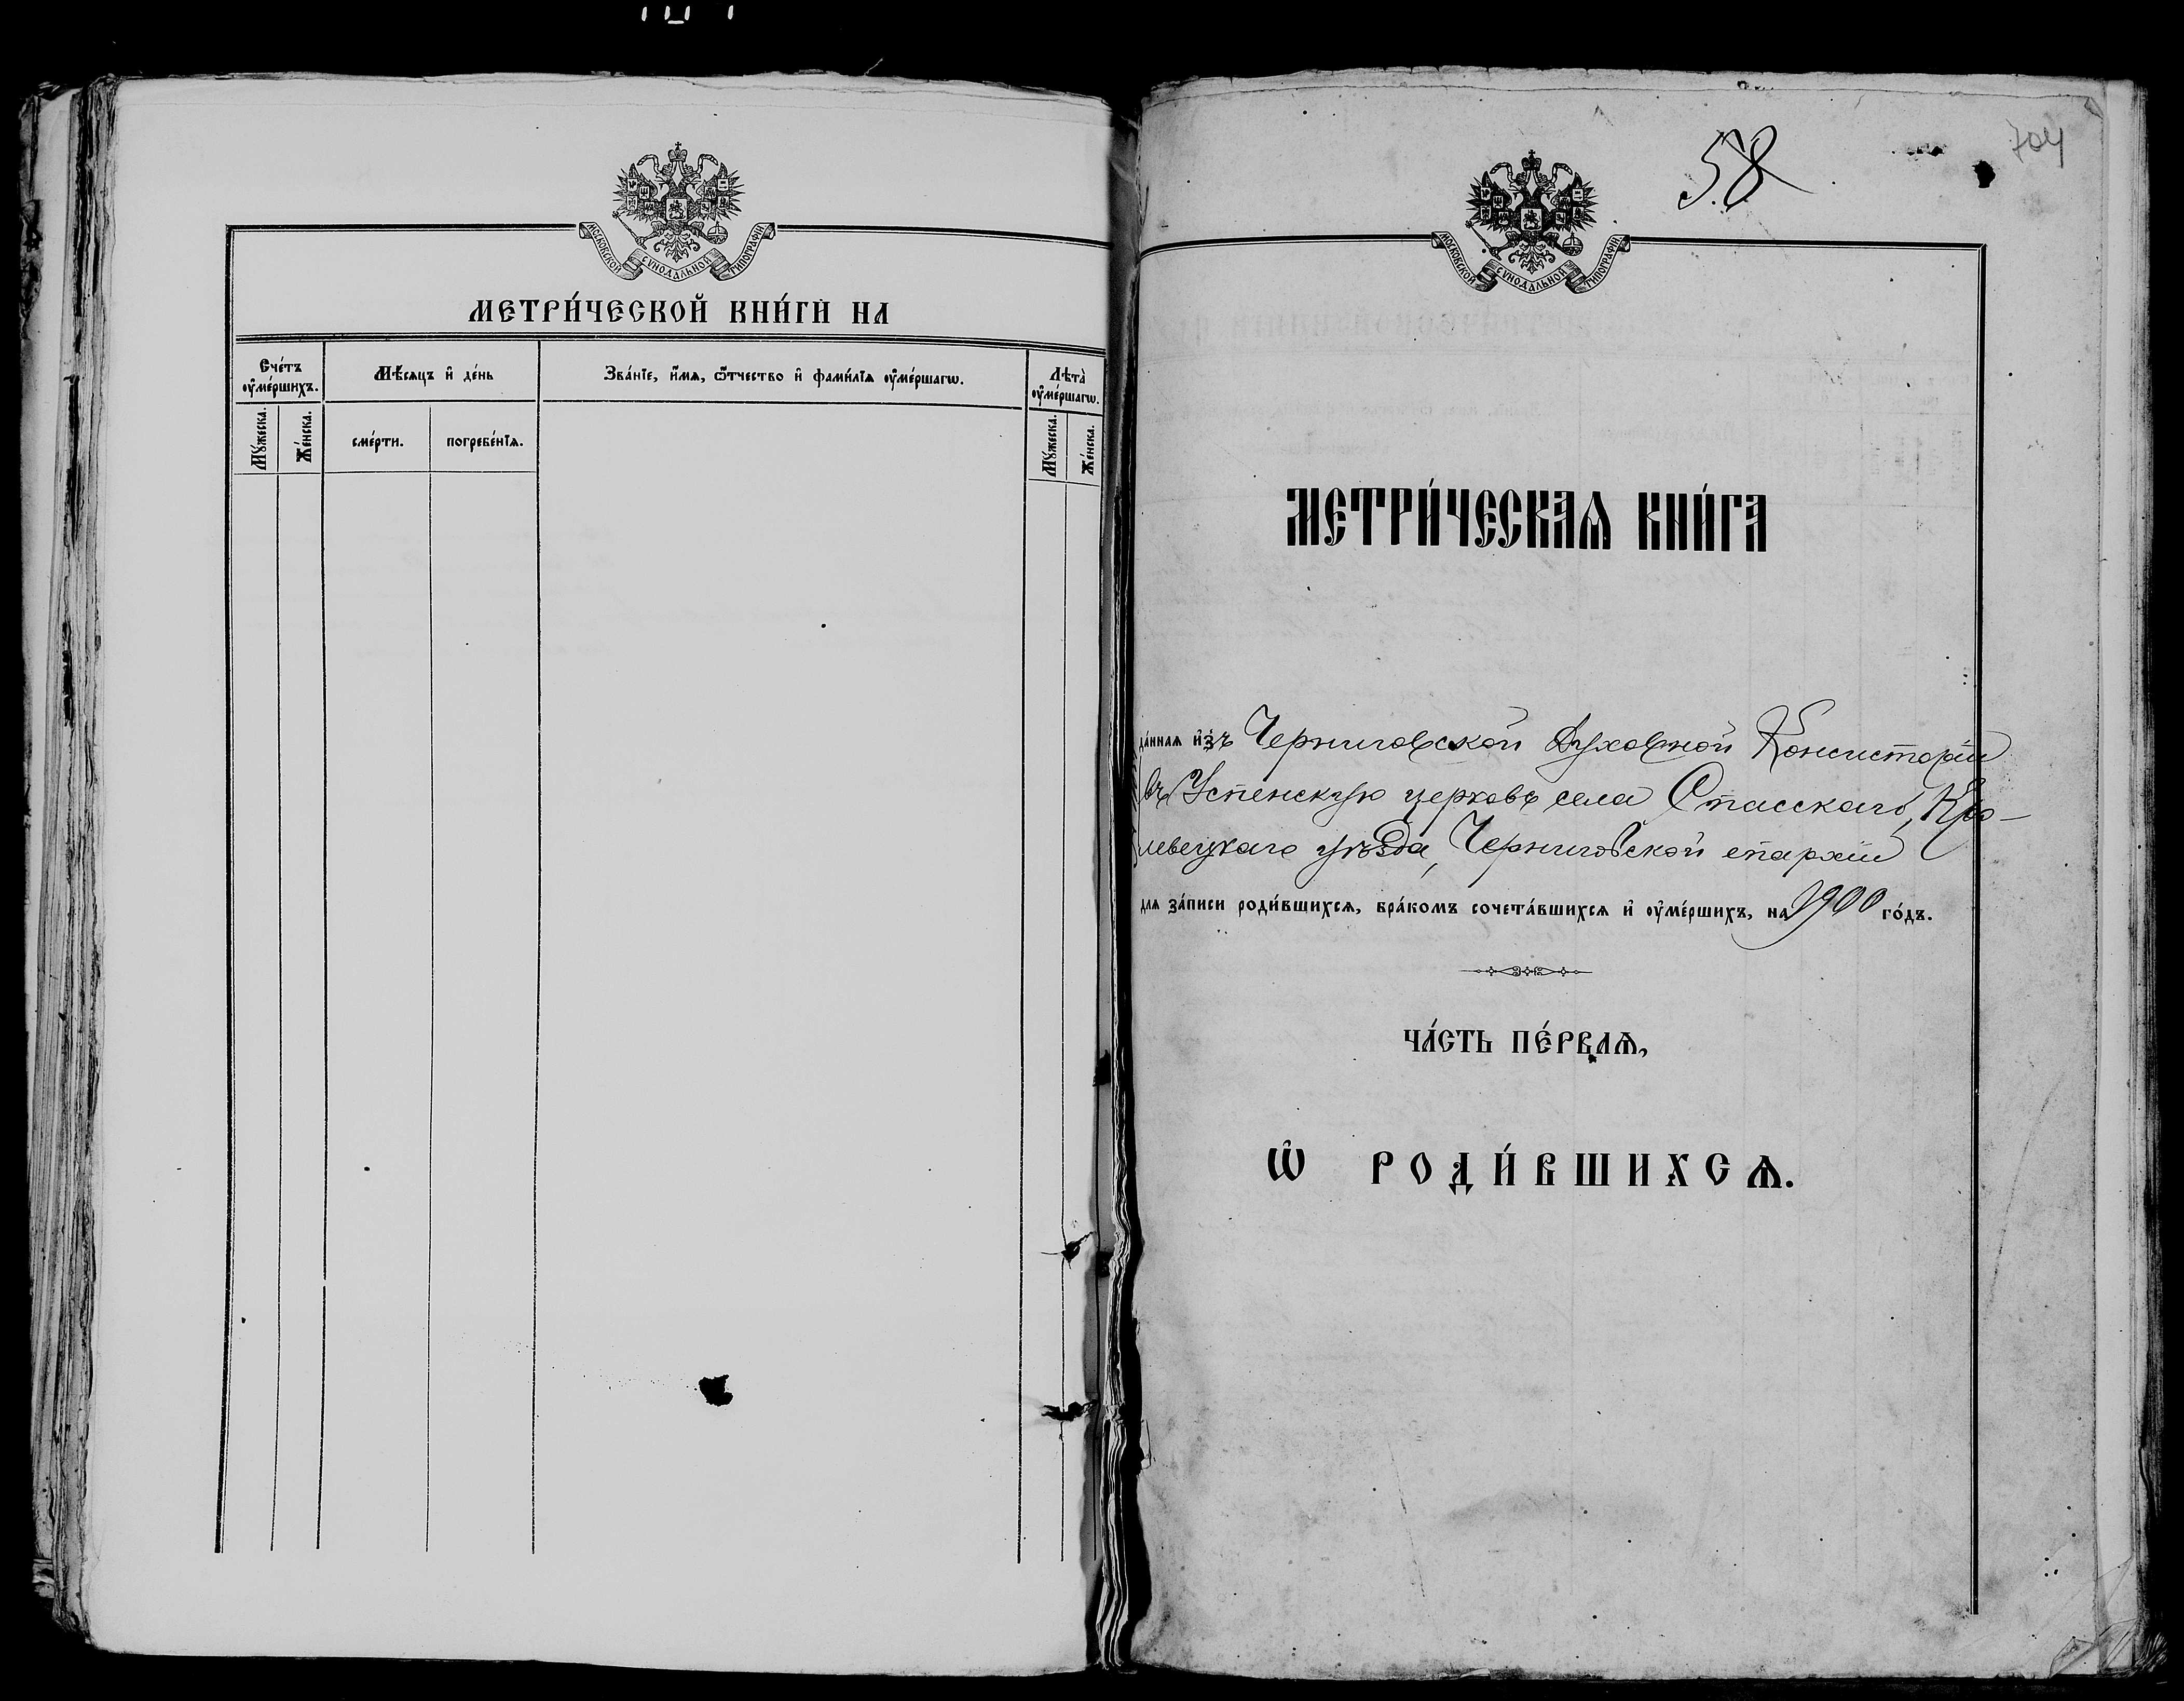 МОСКОВСКОЙ СѴНОДАЛЬНОЙ ТИПОГРАФІИ
МЕТРИ́ЧЕСКОЙ КНИ́ГИ НА
Сче́тъ ᲂу҆ме́ршихъ.
Мꙋ́жеска.
Же́нска.
Мѣ́сяцъ и҆ де́нь
сме́рти.
погребе́нїѧ.
Зва́нїе, и҆́мѧ, ѻ҆́тчество и҆ фами́лїѧ ᲂу҆ме́ршагѡ.
Лѣ́та ᲂу҆ме́ршагѡ.
Мꙋ́жеска.
Же́нска.
58
704
МОСКОВСКОЙ СѴНОДАЛЬНОЙ ТИПОГРАФІИ
МЕТРИ́ЧЕСКАѦ КНИ́ГА
да́ннаѧ и҆зъ Черниговской Духовной Консисторіи
въ Успенскую церковь села Спасскаго, Кро-
левецкаго уѣзда, Черниговской епархіи
длѧ за́писи роди́вшихсѧ, бра́комъ сочета́вшихсѧ и҆ ᲂу҆ме́ршихъ, на 1900 го́дъ.
ЧА́СТЬ ПЕ́РВАѦ,
Ѡ҆ РОДИ́ВШИХСѦ.